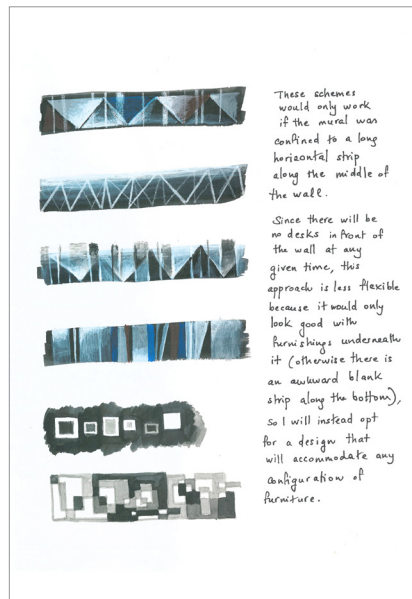 These schemes
would only work
if the mural was
confined to a long
horizontal strip
along the middle of
the wall.
Since there will be
no desks in front of
the wall at any
given time, this
approach is less flexible
because it would only
look good with
furnishings underneath
it (otherwise there is
an awkward blank
strip along the bottom),
so I will instead opt
for a design that
will accommodate any
configuration of
furniture.